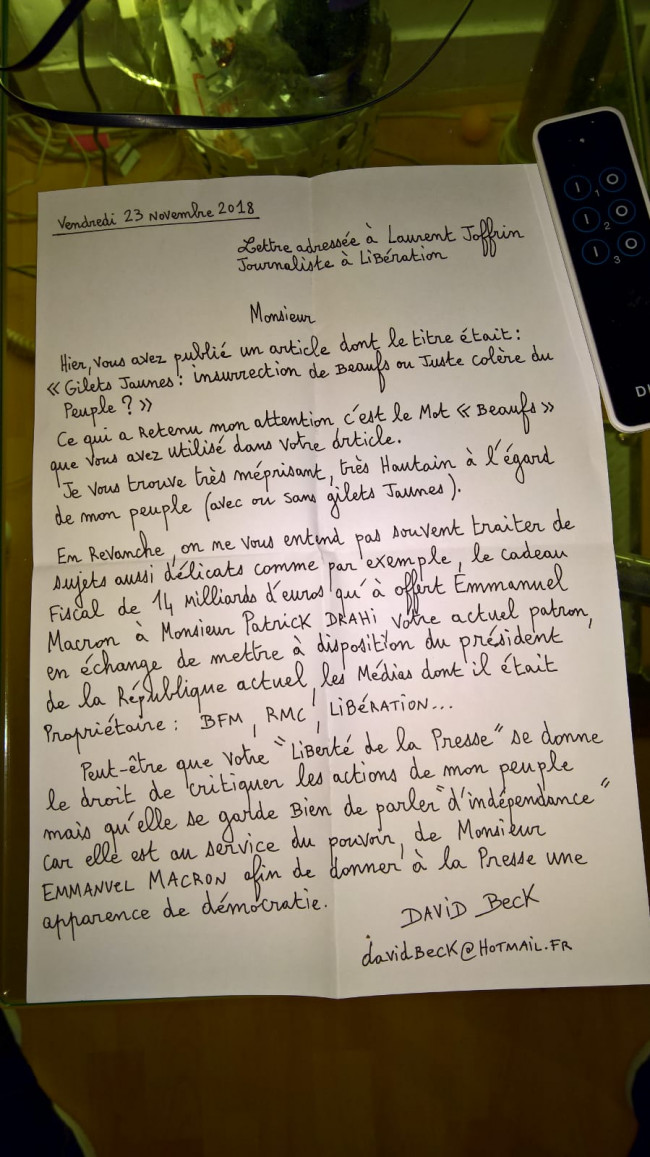 Vendredi 23 Novembre 2018
Lettre adressée à Laurent Joffrin
Journaliste à Libération
Monsieur
Hier, vous avez publié un article dont le titre était :
« Gilets Jaunes : insurrection de Beaufs ou Juste colère du
Peuple ? »
Ce qui a Retenu mon attention c'est le Mot « Beaufs »
que vous avez utilisé dans votre article.
Je vous trouve très méprisant, très Hautain à l'égard
de mon peuple (avec ou sans gilets Jaunes).
En Revanche, on ne vous entend pas souvent traiter de
sujets aussi délicats comme par exemple, le cadeau
Fiscal de 14 milliards d'euros qu'à offert Emmanuel
Macron à Monsieur Patrick DRAHi votre actuel patron,
en échange de mettre à disposition du président
de la République actuel, les Médias dont il était
Propriétaire : BFM, RMC, LiBÉRATiON...
Peut-être que votre "Liberté de la Presse" se donne
le droit de critiquer les actions de mon peuple
mais qu'elle se garde Bien de parler "d'indépendance"
car elle est au service du pouvoir, de Monsieur
EMMANUEL MACRON afin de donner à la Presse une
apparence de démocratie.
DAViD BecK
davidBecK@HOTMAiL.FR
I 1 O
I 2 O
I 3 O